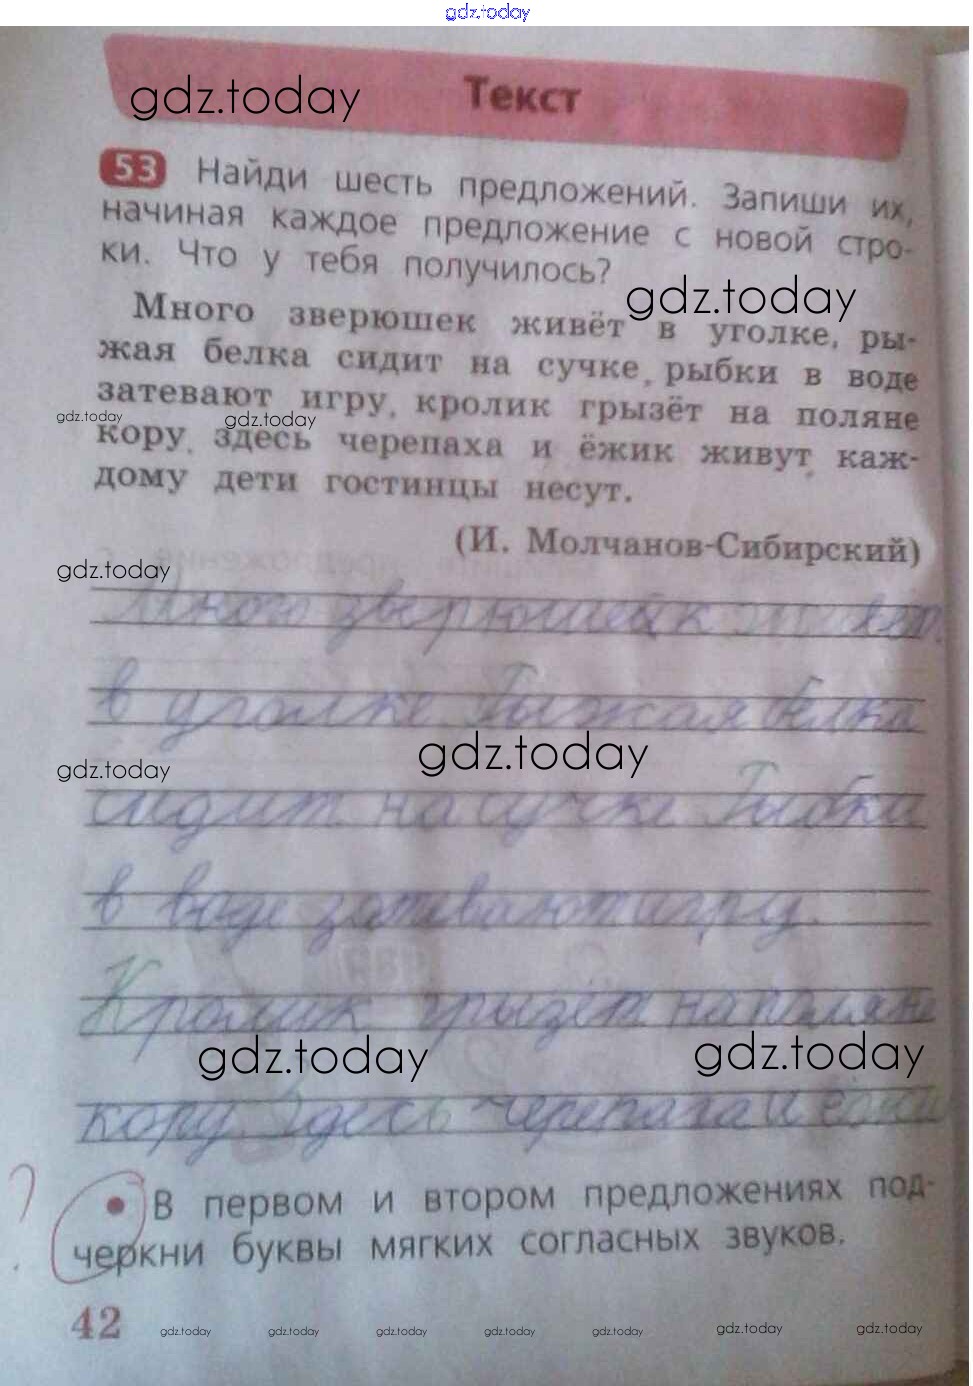 gdz.today
Текст
gdz.today
53 Найди шесть предложений. Запиши их,
начиная каждое предложение с новой стро-
ки. Что у тебя получилось?
gdz.today
Много зверюшек живёт в уголке, ры-
жая белка сидит на сучке, рыбки в воде
затевают игру, кролик грызёт на поляне
gdz.today gdz.today
кору, здесь черепаха и ёжик живут, каж-
дому дети гостинцы несут.
(И. Молчанов-Сибирский)
gdz.today
Много зверюшек живёт
в уголке Рыжая белка
gdz.today
gdz.today
сидит на сучке Рыбки
в воде затевают игру.
Кролик грызёт на поляне
gdz.today gdz.today
кору. Здесь черепаха и ёжик
? • В первом и втором предложениях под-
черкни буквы мягких согласных звуков.
42 gdz.today gdz.today gdz.today gdz.today gdz.today gdz.today gdz.today